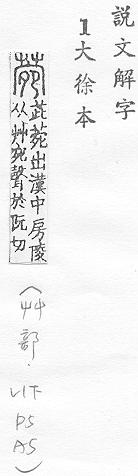 説文解字
1大徐本
菀 茈菀出漢中房陵
从艸宛聲於阮切
(艸部．
VIT
P5
A5)